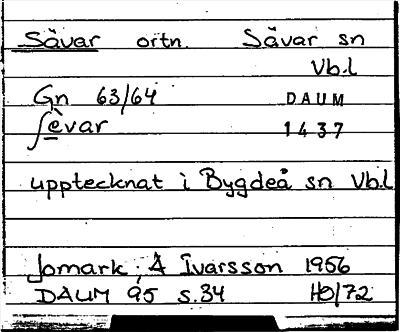 Sävar ortn. Sävar sn
Vb.l
Gn 63/64 DAUM
ʃèvar 1437
upptecknat i Bygdeå sn Vb.l
Jomark, Å Ivarsson 1956
DAUM 95 s.34 HO/72